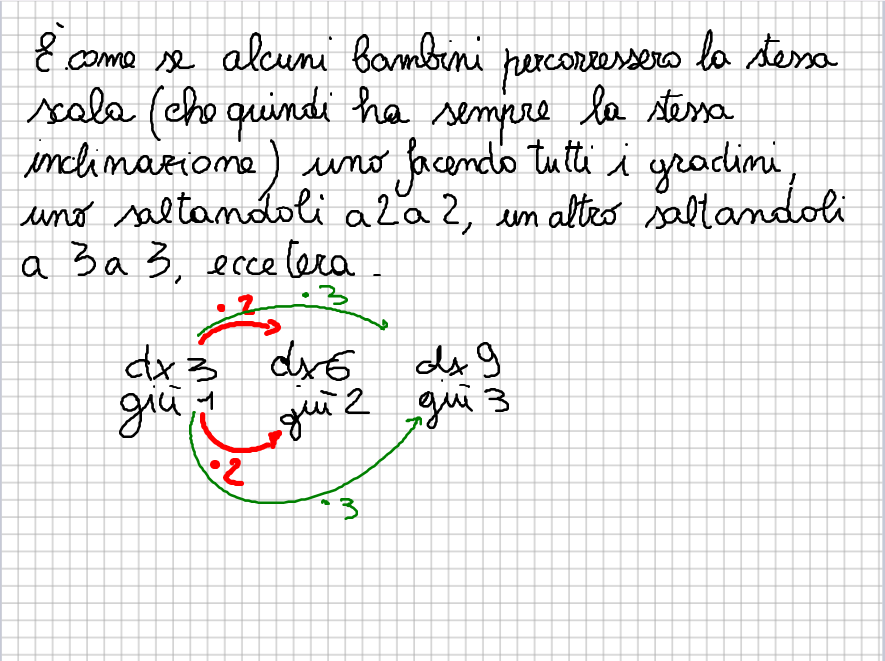 È come se alcuni bambini percorressero la stessa
scala (che quindi ha sempre la stessa
inclinazione) uno facendo tutti i gradini,
uno saltandoli a 2 a 2, un altro saltandoli
a 3 a 3, eccetera.
·2 ·3
dx 3 dx 6 dx 9
giù 1 giù 2 giù 3
·2
·3